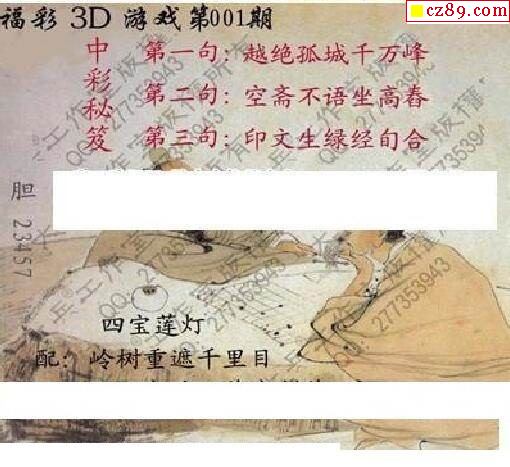 福彩 3D 游戏第001期
cz89.com
中彩秘笈
第一句：越绝孤城千万峰
第二句：空斋不语坐高舂
第三句：印文生绿经旬合
胆 23457
四宝莲灯
配：岭树重遮千里目